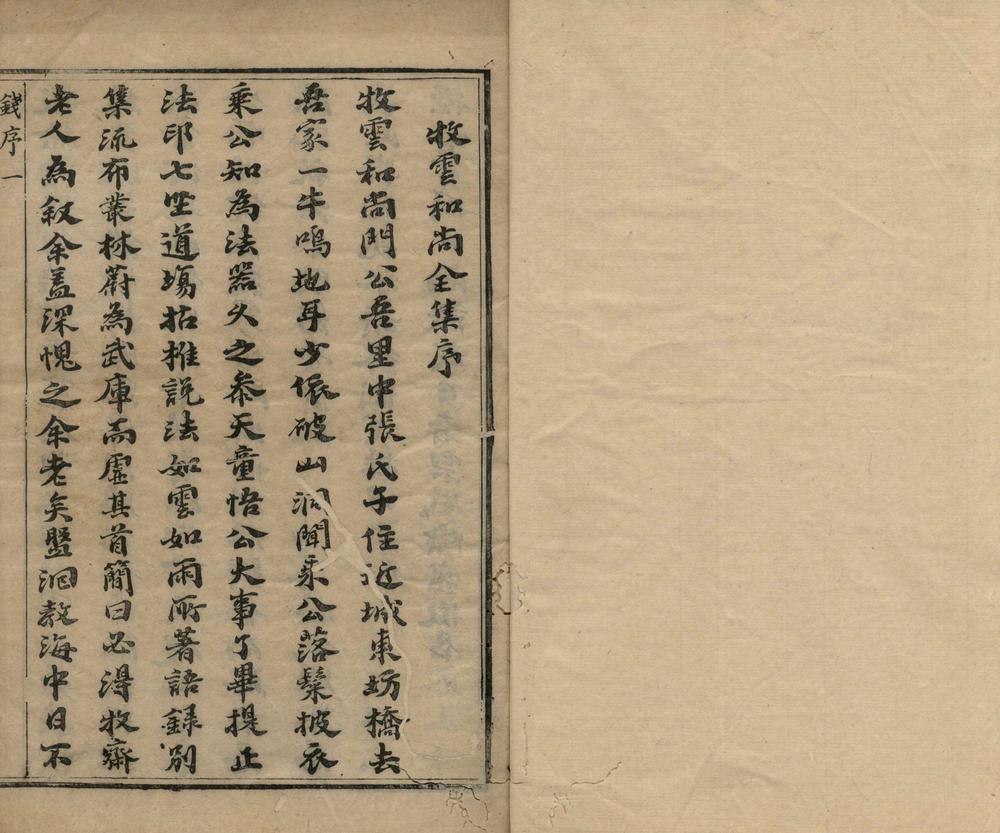 牧雲和尚全集序
牧雲和尚門公吾里中張氏子住近城東坊橋去
吾家一牛鳴地耳少依破山洞聞乘公落髮披衣
乘公知為法器久之叅天童悟公大事了畢提正
法印七坐道塲拈椎説法如雲如雨所著語録别
集流布叢林蔚為武庫而虛其首簡曰必得牧齋
老人為叙余盖深愧之余老矣盥洄教海中日不
錢序一